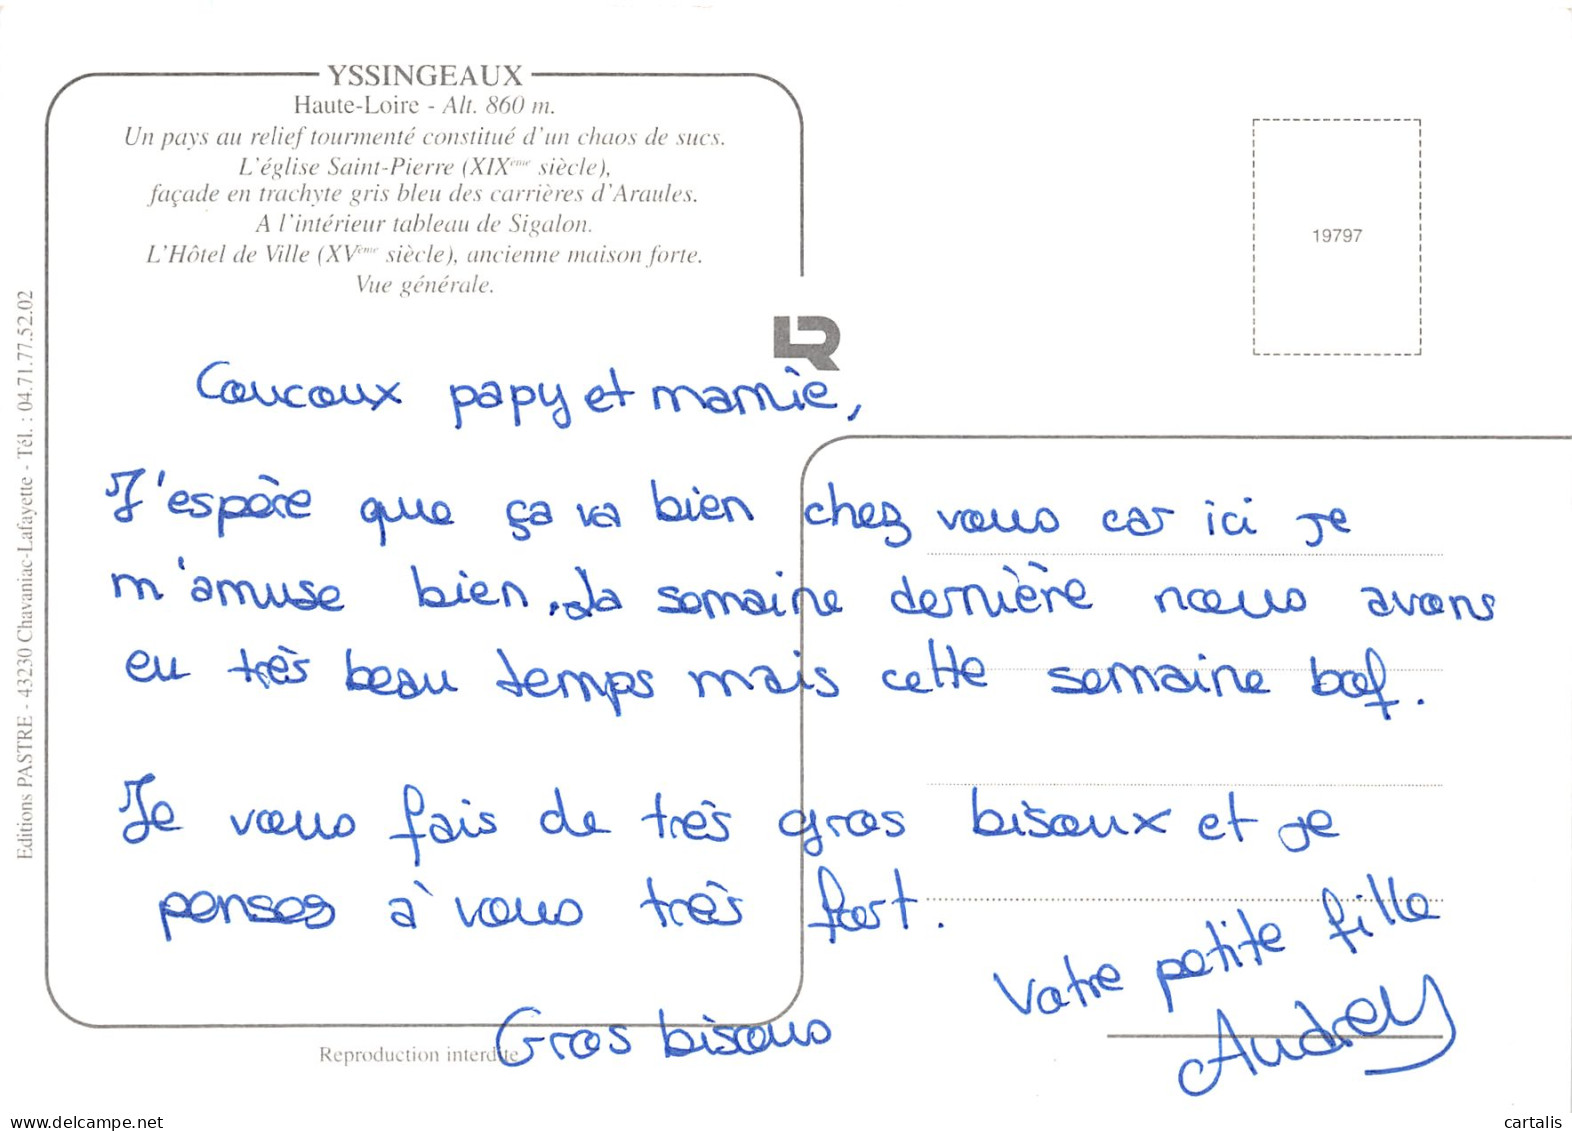 YSSINGEAUX
Haute-Loire - Alt. 860 m.
Un pays au relief tourmenté constitué d'un chaos de sucs.
L'église Saint-Pierre (XIXème siècle),
façade en trachyte gris bleu des carrières d'Araules.
A l'intérieur tableau de Sigalon.
L'Hôtel de Ville (XVème siècle), ancienne maison forte.
Vue générale.
19797
Editions PASTRE - 43230 Chavaniac-Lafayette - Tél. : 04.71.77.52.02
LR
Coucoux papy et mamie,
J'espère que ça va bien chez vous car ici je
m'amuse bien. La semaine dernière nous avons
eu très beau temps mais cette semaine bof.
Je vous fais de très gros bisoux et je
penses à vous très fort.
Votre petite fille
Audrey
Gros bisous
Reproduction interdite
delcampe.net
cartalis